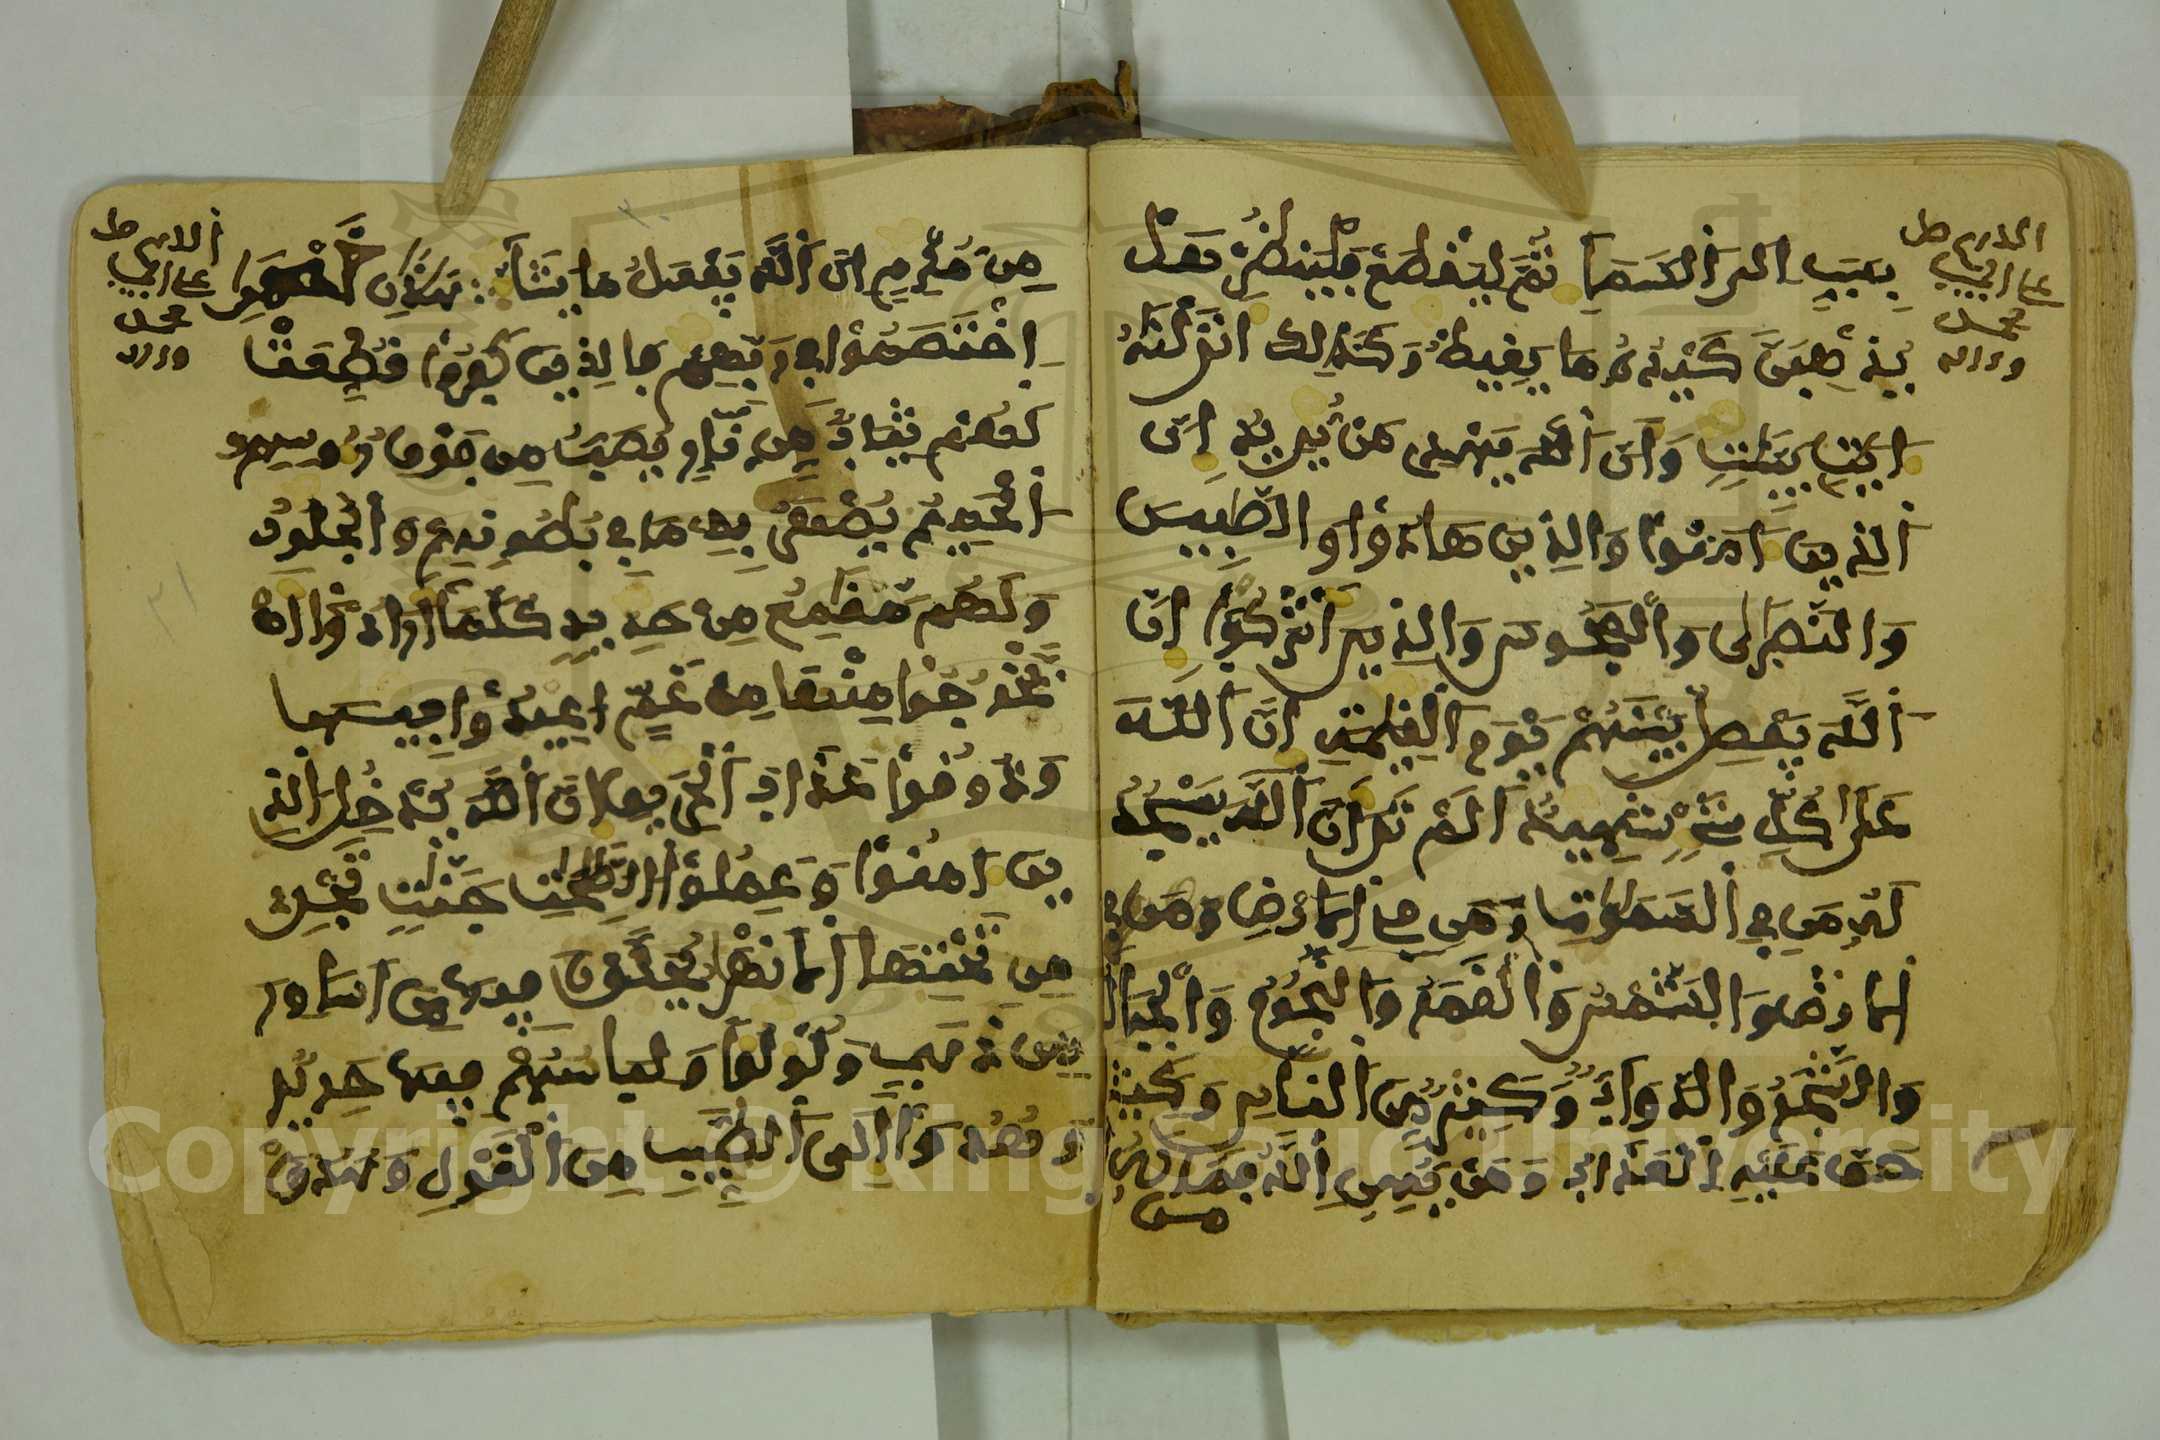 بسبب الى السماء ثم ليقطع فلينظر هل
يذهبن كيده ما يغيظ وكذلك انزلنه
ايت بينت وان الله يهدي من يريد ان
الذين امنوا والذين هادوا والصبين
والنصرى والمجوس والذين اشركوا ان
الله يفصل بينهم يوم القيمة ان الله
على كل شيء شهيد الم تر ان الله يسجد
له من في السموت ومن في الارض ومن في
الارض والشمس والقمر والنجوم والجبال
والشجر والدواب وكثير من الناس وكثير
حق عليه العذاب ومن يهن الله فما له
من
من مكرم ان الله يفعل ما يشاء هذان خصمن
اختصموا في ربهم فالذين كفروا قطعت
لهم ثياب من نار يصب من فوق رءوسهم
الحميم يصهر به ما في بطونهم والجلود
ولهم مقمع من حديد كلما ارادوا ان
يخرجوا منها من غم اعيدوا فيها
وذوقوا عذاب الحريق ان الله يدخل الذ
ين امنوا وعملوا الصلحت جنت تجري
من تحتها الانهر يحلون فيها من اساور
من ذهب ولؤلؤا ولباسهم فيها حرير
وهدوا الى الطيب من القول وهدوا
اللهم صل
على النبي
محمد
واله
اللهم صل
على النبي
محمد
واله
٣٠
٣١
Copyright © King Saud University